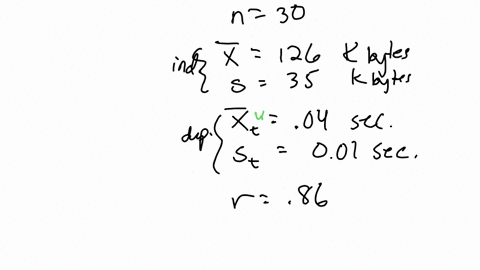 n = 30
ind { X̄ = 126 K bytes
s = 35 K bytes
dep. { X̄t y = .04 sec.
St = 0.01 sec.
r = .86